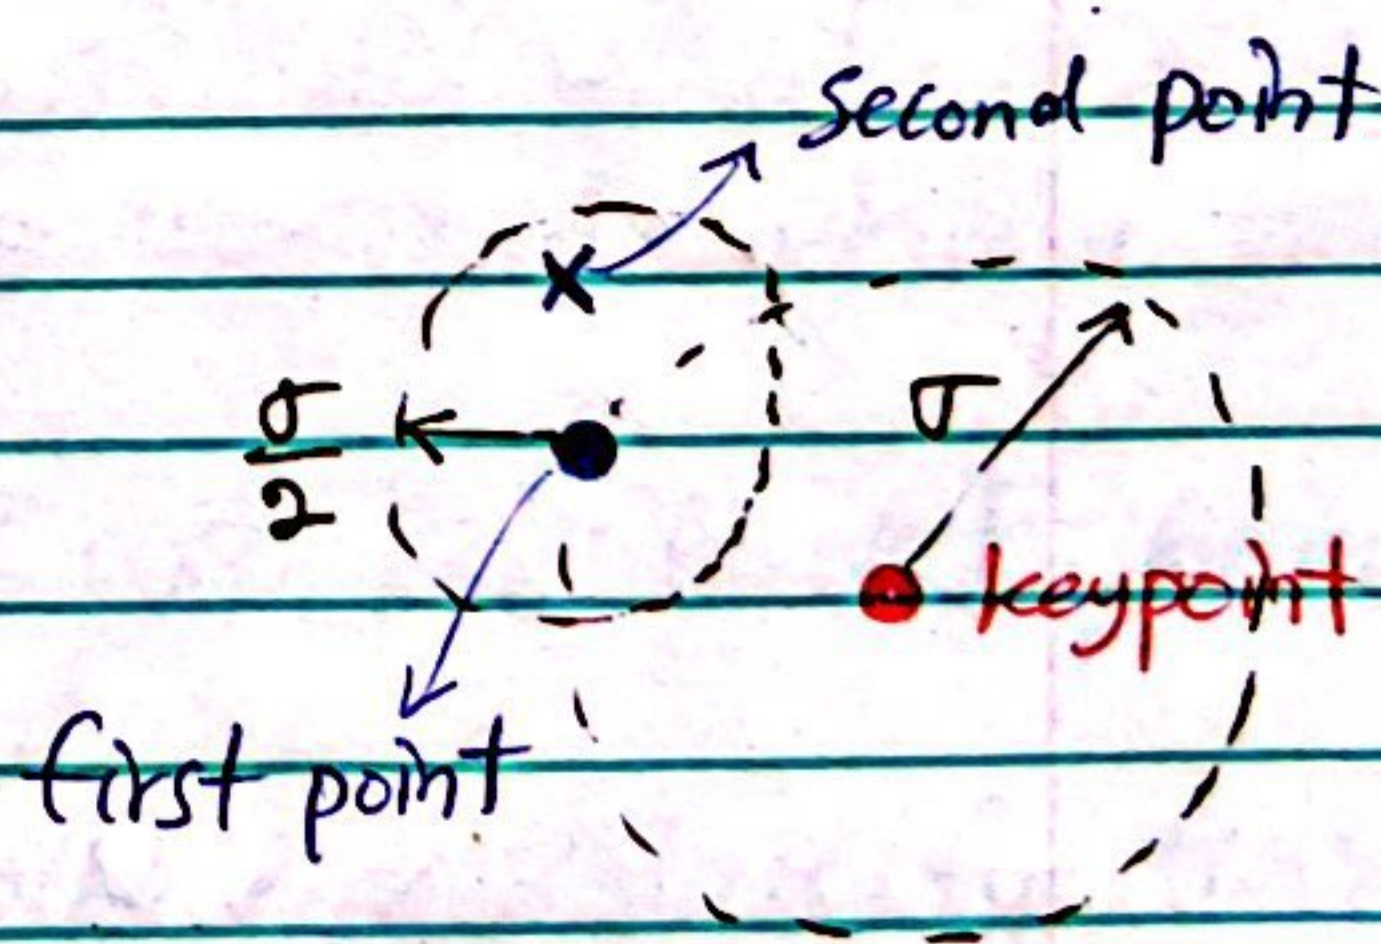 second point
σ
σ/2
keypoint
first point